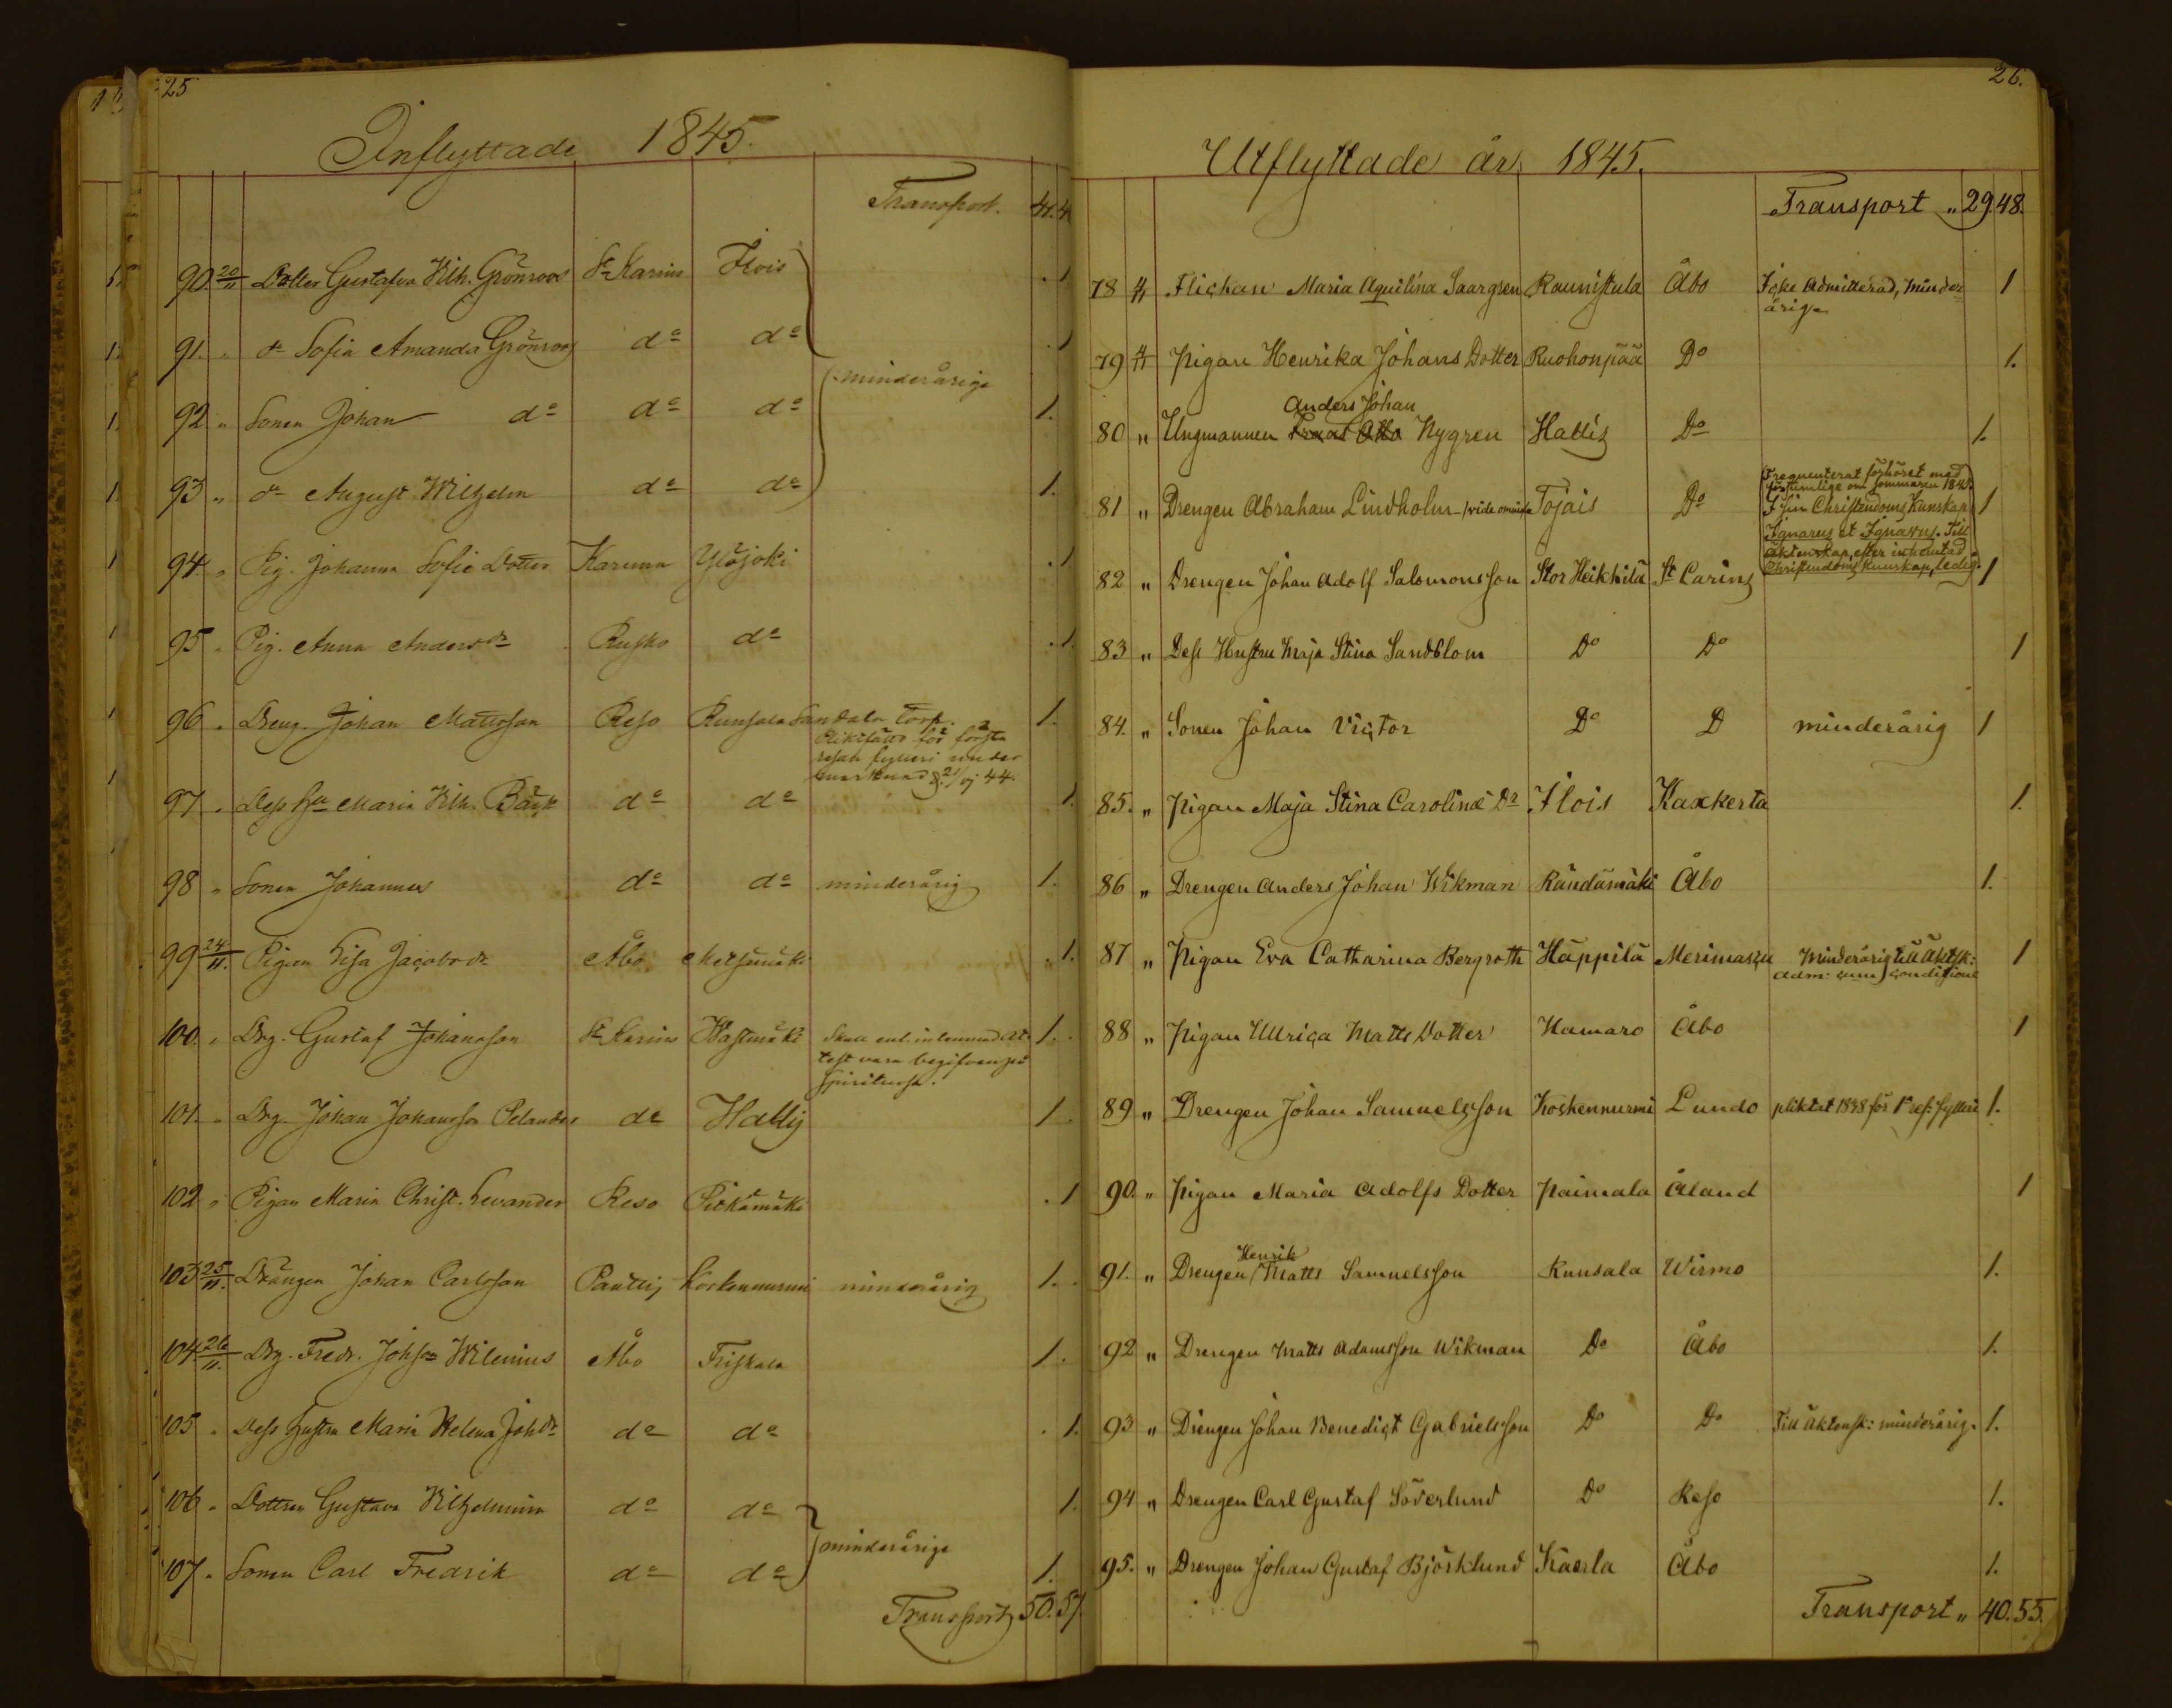 25
Inflyttade 1845.
Transport. 41.4
90. 20/11 Dotter Gustafva Wilh. Grönroos St Karins Ilois . 1
91. " dr Sofia Amanda Grönroos do do . 1
minderårige
92. " Sonen Johan do do do 1.
93 " dr August Wilhelm do do 1.
94. " Pig. Johanna Sofie Dotter Karuna Yläjoki . 1
95 " Pig. Anna Andersdr Rusko do . 1
96 " Dreng. Johan Mattsson Reso Runsala Sandala Torp. 1.
för första
resan fylleri under
44.
97 " Dess Hu Maria Wilh. Bäck do do 1.
98 " Sonen Johannes do do minderårig 1.
99 24/11. Pigan Lisa Jacobsdr Åbo Metsämäki . 1.
100. " Drg. Gustaf Johansson St Karins Wastmäki Skall enl. inlemnad At- 1.
test vara begifven på
Spirituosa.
101. " Drg. Johan Johansson Pelander do Hallis 1
102 " Pigan Maria Christ. Levander Reso Pitkämäki . 1
103 25/11. Drängen Johan Carlsson Pantis Koskennurmi minderårig 1.
104. 26/11. Drg. Fredr. Johsson Wilenius Åbo Friskala 1.
105 " Dess Hustru Maria Helena Johdr do do . 1.
106 " Dottren Gustava Wilhelmina do do 1.
minderårige
107. " Sonen Carl Fredrik do do 1.
Transport 50.57
26.
Utflyttade år 1845.
Transport " 29.48.
78 4/11 Flickan Maria Aquilina Saargren Raunistula Åbo Icke Admitterad, minder 1
årig
79 4/11 Pigan Henrika Johans Dotter Ruohonpää Do 1.
Anders Johan
80 " Ungmannen Nygren Hallis Do 1.
Frequenterat förhöret med
om sommaren
81 " Drengen Abraham Lindholm Tojais Do I sin Christendoms Kunskap 1
Ignarus et Ignavus. Till
Äktenskap, efter inhemtad
82 " Drengen Johan Adolf Salomonsson Stor Heikkilä St Carins Christendoms kunskap, ledig. 1
83 " Dess Hustru Maja Stina Sandblom Do Do 1
84. " Sonen Johan Victor Do D minderårig 1
85. " Pigan Maja Stina Carolinæ Dr Ilois Kaxkerta 1.
86 " Drengen Anders Johan Wikman Räntämäki Åbo 1.
87 " Pigan Eva Catharina Bergroth Häppilä Merimasku Minderårig till Äktsk: 1
adm: cum conditione
88 " Pigan Ullrica Matts Dotter Hamaro Åbo 1
89 " Drengen Johan Samuelsson Koskennurmi Lundo pliktat 1838 för 1a res: fylleri 1.
90. " Pigan Maria Adolfs Dotter Paimala Åland 1
Henrik
91. " Drengen Matts Samuelsson Runsala Wirmo 1.
92 " Drengen Matts Adamsson Wikman Do Åbo 1.
93 " Drengen Johan Benedict Gabrielsson Do Do Till äktensk: minderårig. 1.
94 " Drengen Carl Gustaf Söderlund Do Reso 1.
95. " Drengen Johan Gustaf Björklund Kaerla Åbo 1.
Transport " 40.55.